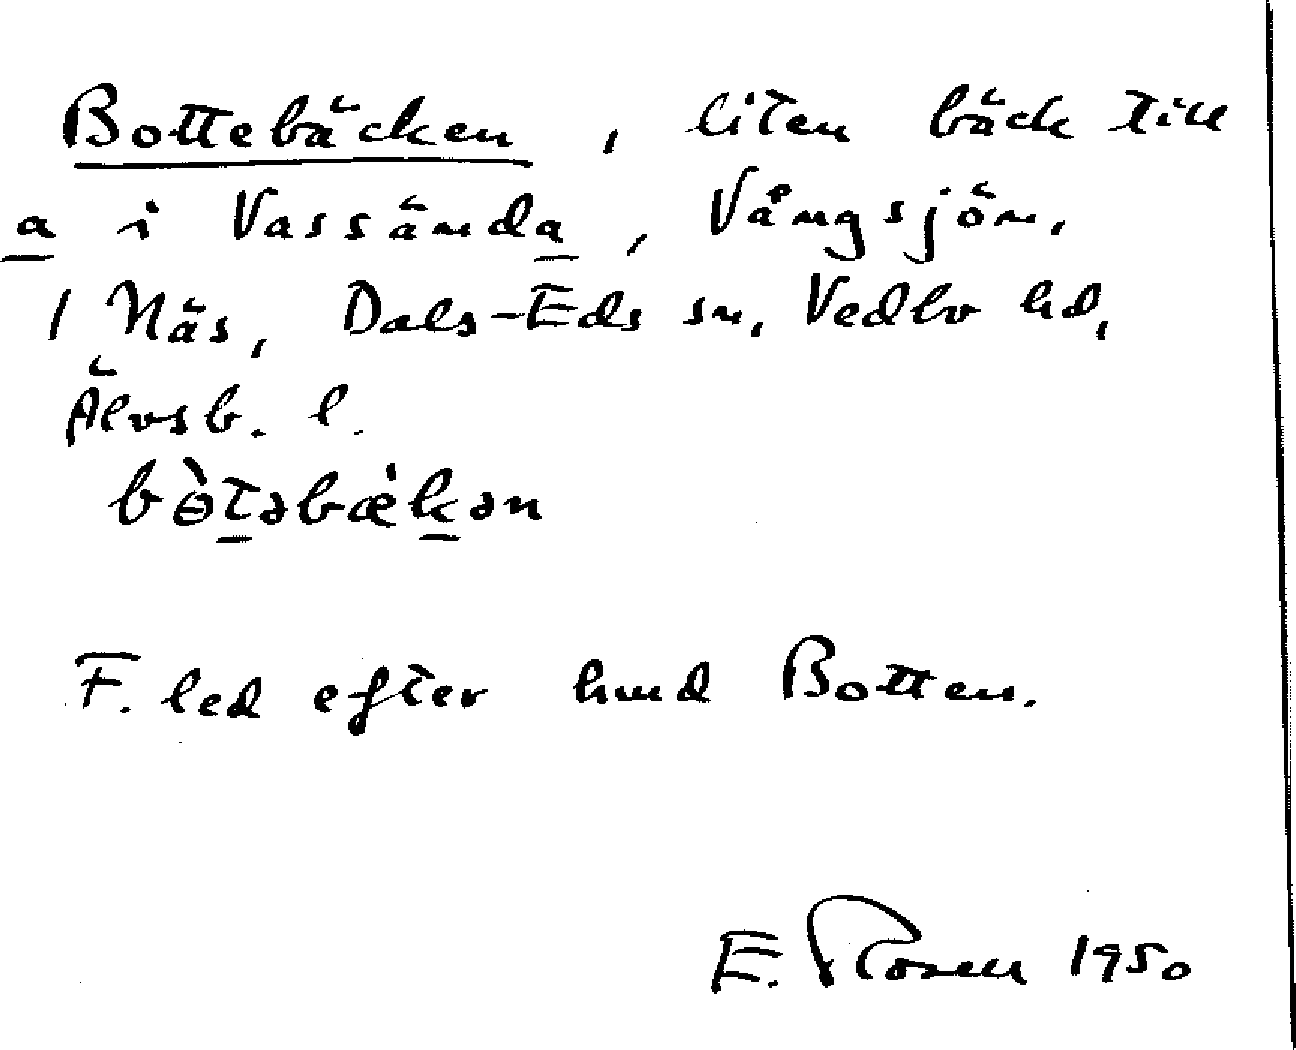 Bottebäcken, liten bäck till
a i Vassända, Vångsjön,
1 Näs, Dals-Eds sn, Vedbo hd,
Älvsb. l.
bòtəbæ̀kən
F. led efter hund Botten.
E. Rosen 1950